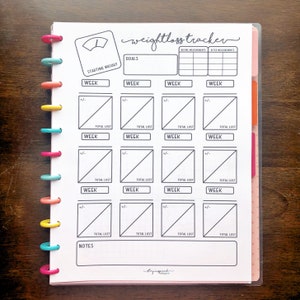 weightloss tracker
STARTING WEIGHT
GOALS
WEEK WEEK WEEK WEEK
+/- +/- +/- +/-
TOTAL LOST TOTAL LOST TOTAL LOST TOTAL LOST
WEEK WEEK WEEK WEEK
+/- +/- +/- +/-
TOTAL LOST TOTAL LOST TOTAL LOST TOTAL LOST
WEEK WEEK WEEK WEEK
+/- +/- +/- +/-
TOTAL LOST TOTAL LOST TOTAL LOST TOTAL LOST
NOTES